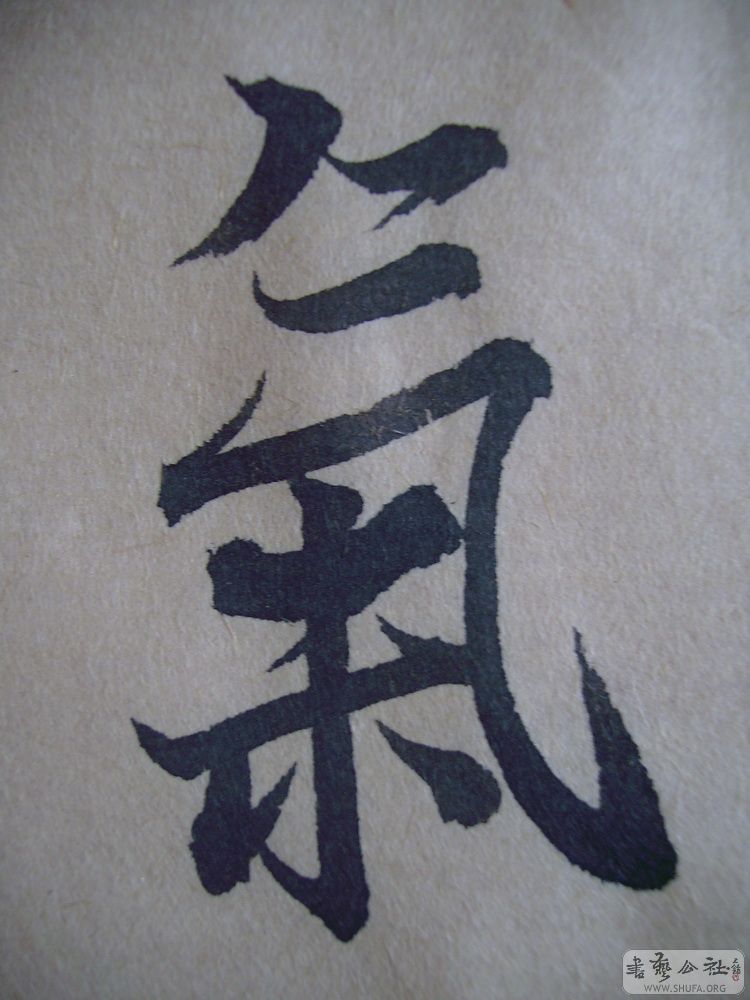 氣
書藝公社
WWW.SHUFA.ORG